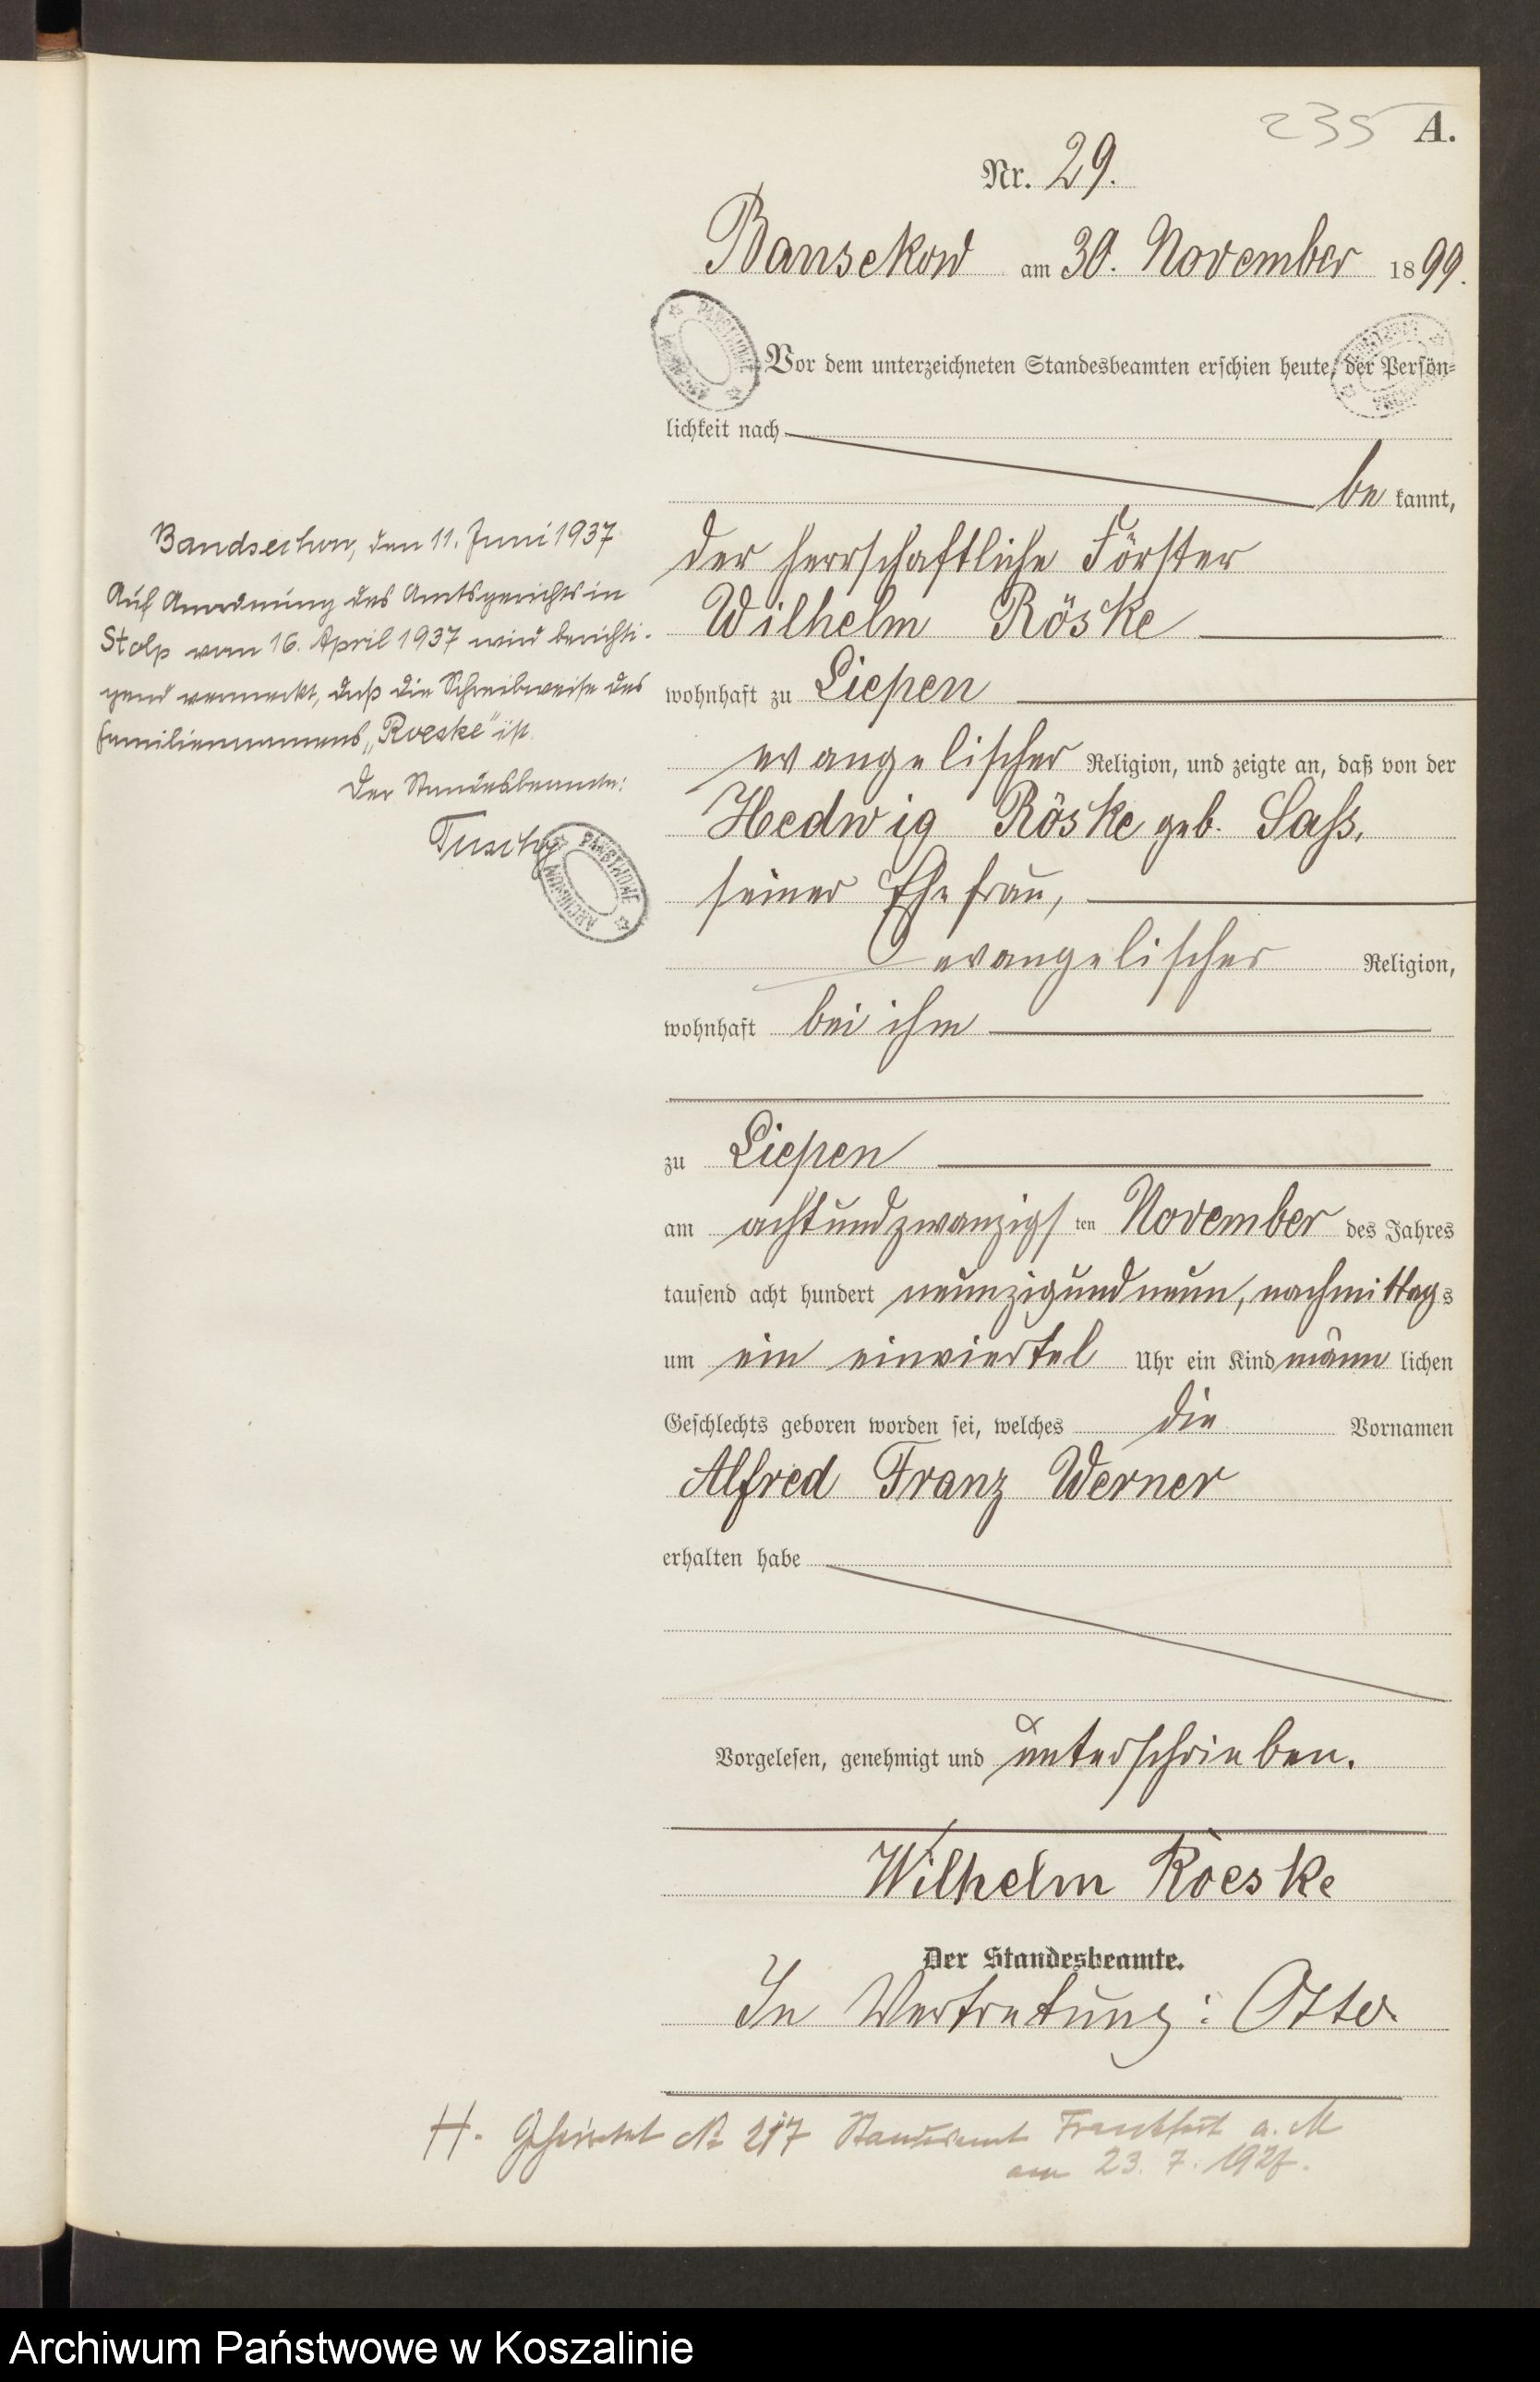 235 A.
Nr. 29.
Bansekow am 30. November 1899.
Vor dem unterzeichneten Standesbeamten erschien heute, der Persön-
lichkeit nach
be kannt,
der herrschaftliche Förster
Wilhelm Röske
wohnhaft zu Liepen
evangelischer Religion, und zeigte an, daß von der
Hedwig Röske geb. Sass,
seiner Ehefrau,
evangelischer Religion,
wohnhaft bei ihm
zu Liepen
am achtundzwanzigsten November des Jahres
tausend acht hundert neunzigundneun, nachmittags
um ein einviertel Uhr ein Kind männlichen
Geschlechts geboren worden sei, welches die Vornamen
Alfred Franz Werner
erhalten habe
Vorgelesen, genehmigt und unterschrieben.
Wilhelm Roeske
Der Standesbeamte.
In Vertretung: Otto
Bandsechow, den 11. Juni 1937
Auf Anordnung des Amtsgerichts in
Stolp vom 16. April 1937 wird berichti-
gend vermerkt, daß die Schreibweise des
Familiennamens „Roeske“ ist.
Der Standesbeamte:
ARCHIWUM PAŃSTWOWE
H. Geheiratet № 217 Standesamt Frankfurt a. M
am 23. 7.
Archiwum Państwowe w Koszalinie